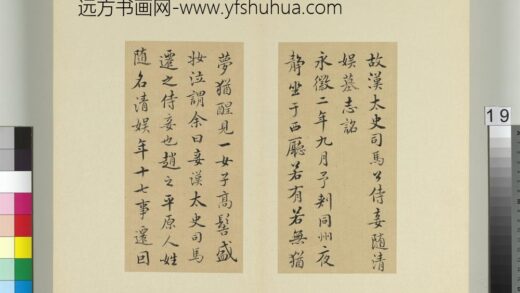 远方书画网-www.yfshuhua.com
故漢太史司馬公侍妾随清
娱墓志銘
永徽二年九月予刺同州夜
静坐于西廳若有若無猶
夢猶醒見一女子高髻盛
妝泣謂余曰妾漢太史司馬
遷之侍妾也趙之平原人姓
随名清娱年十七事遷因
19